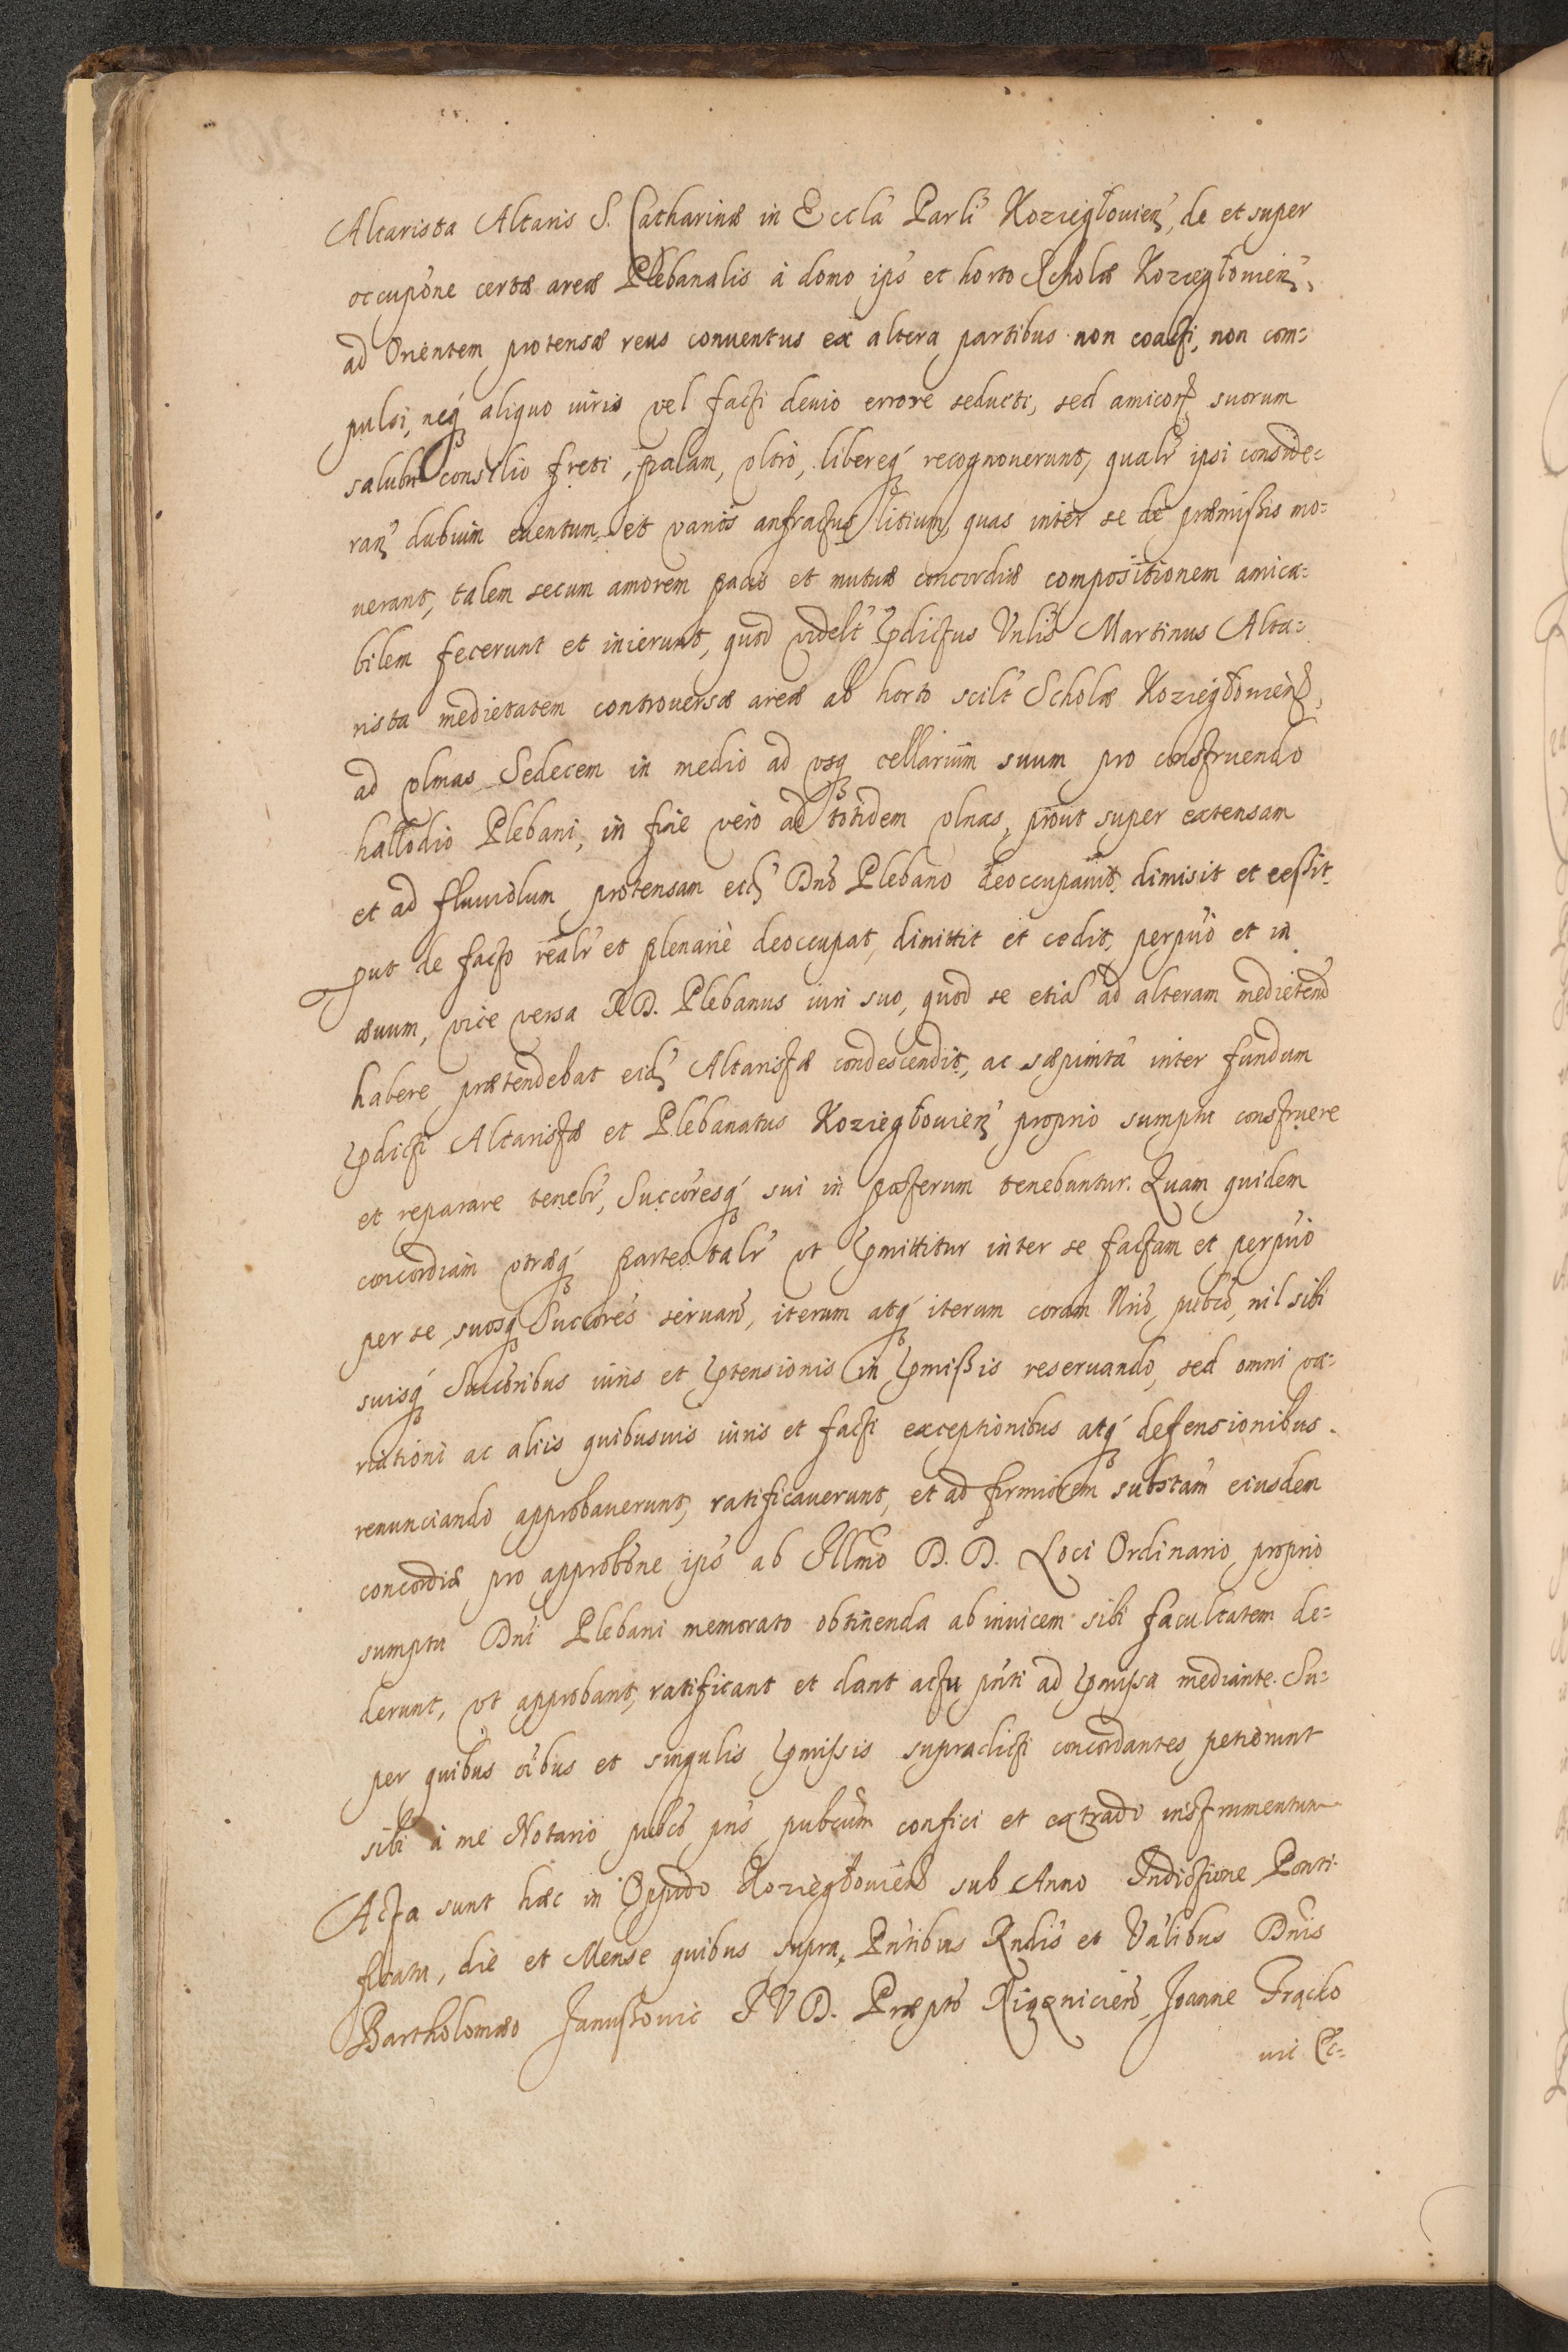 Altarista Altaris S. Catharinæ in Eccla Parli Koziegłouien, de et super
occupõne certæ areæ Plebanalis à domo ipś et horto Scholæ Koziegłouien,
ad Orientem protensæ reus conuentus ex altera partibus non coacti, non com=
pulsi, neq́ aliquo iuris vel facti deuio errore seducti, sed amicor suorum
salubri consilio freti, palam, vltro, libereq́ recognouerunt, qualr ipsi conside=
ran dubium euentum et varios anfractus litium, quas inter se de præmißis mo=
uerant, talem secum amorem pacis et mutuæ concordiæ compositionem amica=
bilem fecerunt et inierunt, quod videlt pdictus Vnlis Martinus Alta=
rista medietatem controuersæ areæ ab horto scilt Scholæ Koziegłouien,
ad vlmas Sedecem in medio ad vsq cellarium suum pro construendo
hallodio Plebani, in fine vero ad totidem vlnas, prout super extensam
et ad fluuiolum protensam eid Dno Plebano deoccupauit, dimisit et ceßit
put de facto realr et plenariè deoccupat, dimittit et cedit, perpuò et in
æuum, vice versa R D. Plebanus iuri suo, quod se etia ad alteram medietem
habere prætendebat eid Altaristæ condescendit, ac sæpimta inter fundum
pdicti Altaristæ et Plebanatus Koziegłouien proprio sumptu construere
et reparare tenebr, Succoresq́ sui in posterum tenebuntur. Quam quidem
concordiam vtræq́ partes talr vt pmittitur inter se factam et perpuò
per se suosq Succores seruare, iterum atq́ iterum coram Nrio, pubco, nil sibi
suisq́ Succoribus iuris et ptensionis in pmißis reseruando, sed omni va=
riationi ac aliis quibusuis iuris et facti exceptionibus atq́ defensionibus
renunciando approbauerunt, ratificauerunt, et ad firmiorem substam eiusdem
concordiæ pro approbõne ipś ab Illmo D. D. Loci Ordinario, proprio
sumptu Dni Plebani memorato obtinenda ab inuicem sibi facultatem de=
derunt, vt approbant, ratificant et dant actu pnti ad pmissa mediante. Su=
per quibus oibus et singulis pmissis supradicti concordantes petierunt
sibi à me Notario pubco pns pubcum confici et extradi instrumentum
Acta sunt hæc in Oppido Koziegłouien sub Anno Indictione Ponti=
ficatu, die et Mense quibus supra, Pntibus Rndis et Valibus Dnis
Bartholomæo Janußouic I V D. Præpto Xiązniciens, Joanne Fracko
uic Ec=